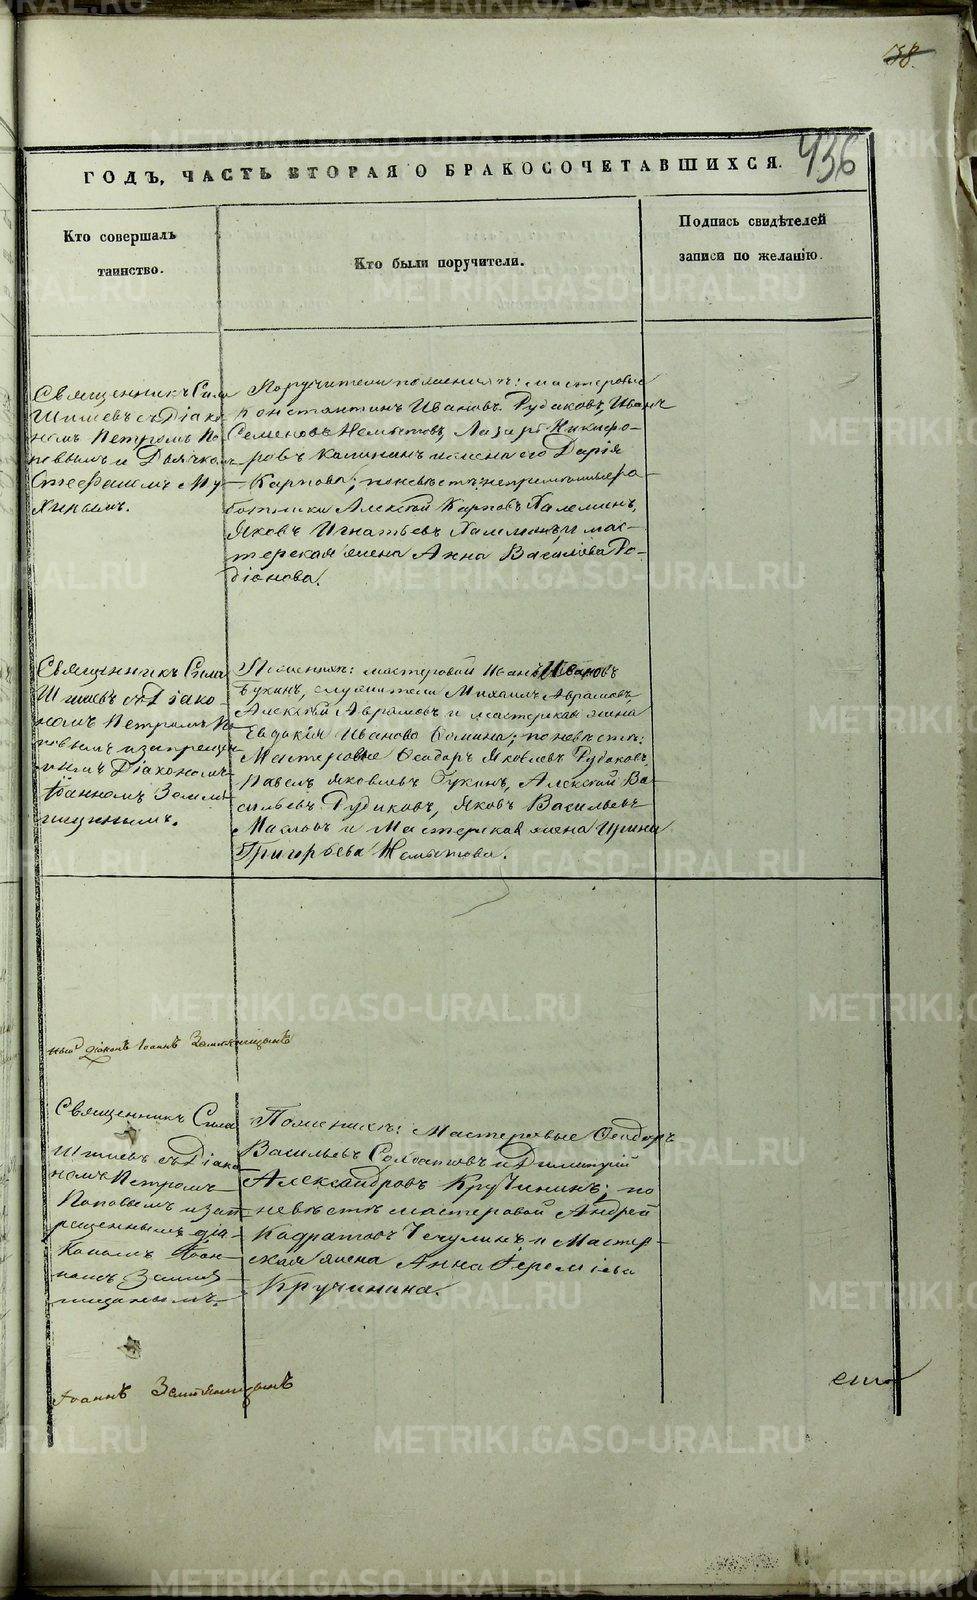 138.
436
ГОДЪ, ЧАСТЬ ВТОРАЯ О БРАКОСОЧЕТАВШИХСЯ.
Кто совершалъ
таинство.
Кто были поручители.
Подпись свидѣтелей
записи по желанію.
Священникъ Сила
Шишевъ съ Діако-
номъ Петромъ По-
повымъ и Дьячкомъ
Стефаномъ Му-
хинымъ.
Поручители по женихѣ: мастеровые
Константинъ Ивановъ Рудаковъ, Иванъ
Семеновъ Немытовъ, Лазарь Никифо-
ровъ Калининъ и жена его Дарія
Карпова; по невѣстѣ: непремѣнные ра-
ботники Алексѣй Карповъ Халеминъ,
Яковъ Игнатьевъ Халеминъ и мас-
терская жена Анна Васильева Ро-
діонова.
Священникъ Сила
Шишевъ съ Діако-
номъ Петромъ По-
повымъ и запрещен-
нымъ Діакономъ
Іоанномъ Земля-
ницынымъ.
По женихѣ: мастеровой Иванъ Ивановъ
Букинъ, служители Михаилъ Аврамовъ,
Алексѣй Аврамовъ и мастерская жена
Евдокія Иванова Сомина; по невѣстѣ:
Мастеровые Ѳеодоръ Яковлевъ Рудаковъ,
Павелъ Яковлевъ Букинъ, Алексѣй Ва-
сильевъ Рудаковъ, Яковъ Васильевъ
Масловъ и Мастерская жена Ирина
Григорьева Немытова.
ный діаконъ Іоаннъ Земляницынъ
Священникъ Сила
Шишевъ съ Діако-
номъ Петромъ
Поповымъ и зап-
рещеннымъ діа-
кономъ Іоан-
номъ Земля-
ницынымъ.
По женихѣ: Мастеровые Ѳеодоръ
Васильевъ Солдатовъ и Димитрій
Александровъ Кручининъ; по
невѣстѣ мастеровой Андрей
Кодратовъ Чечулинъ и Мастер-
ская жена Анна Еремѣева
Кручинина.
Іоаннъ Земляницынъ